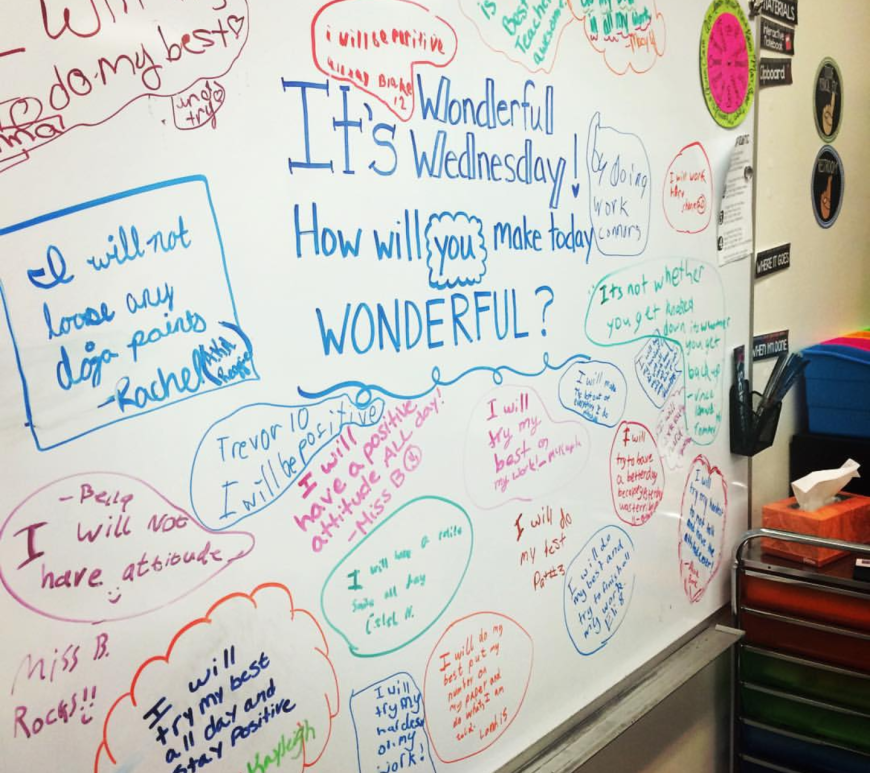 I do my best
is
Best
Teacher
awesome
in all my work
i will be positive
all day Blake
12
It's Wonderful
Wednesday!
How will you make today
WONDERFUL?
by doing
work
I will work
I will not
loose any
doja points
-Rachel
Its not whether
you get knocked
down, its whether
you get
back up
Trevor 10
I will be positive
I will
have a positive
attitude ALL day!
-Miss B
I will
try my
best on
my work!
I will
try to have
a better day
because yesterday
was terrible
I will make
the best out of
I will
try my hardest
to not talk
and have
-Bella
I will Not
have attitude
I will have a smile
all day
I will do
my test
Part #3
I will do
my best and
try to finish all
my work
Miss B.
Rocks!!
I will
try my best
all day and
stay Positive
Kayleigh
I will
try my
hardest
on my
work!
I will do my
best put my
number on
my paper and
do what I am
told.
MATERIALS
Interactive
Notebook
Clipboard
RESTROOM
WHERE IT GOES
WHEN I'M DONE